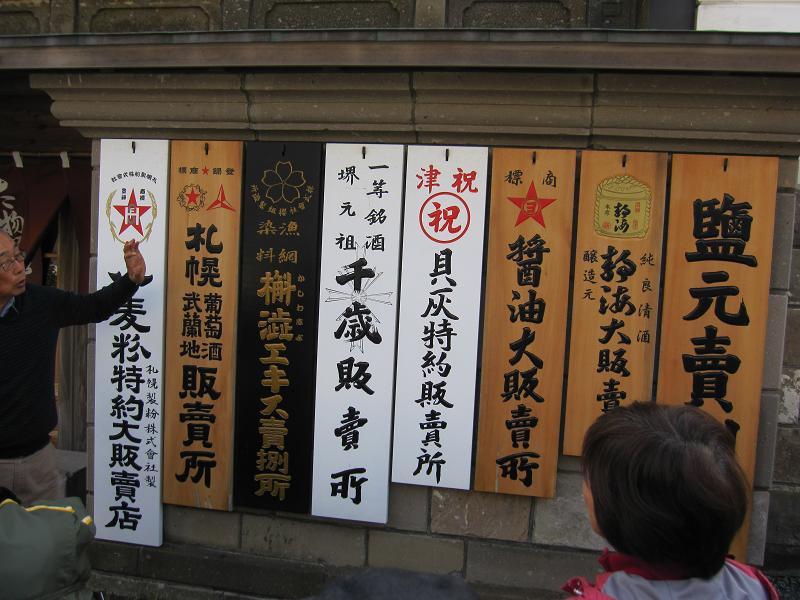 鹽元賣
静海
純良清酒
静海大販賣
醸造元
商標
醤油大販賣所
祝津
祝
貝灰特約販賣所
一等銘酒
堺元祖
千歳販賣所
漁網
染料
かしわしぶ
槲澁エキス賣捌所
登録★商標
札幌
葡萄酒
武蘭地
販賣所
麦粉特約大販賣店
札幌製粉株式會社製